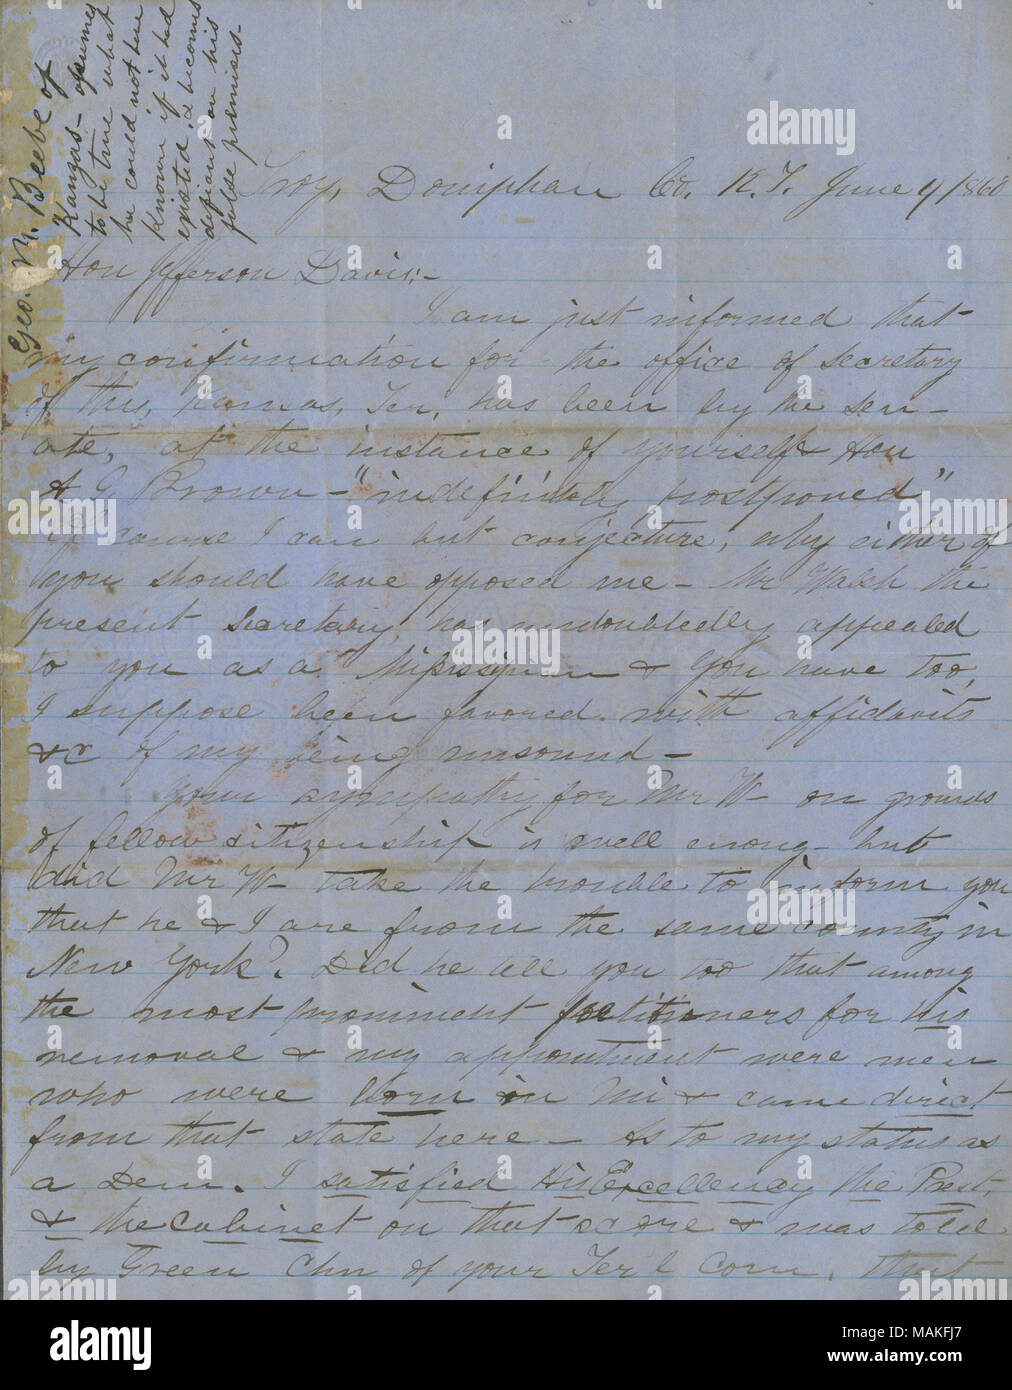 Geo. M. Beebe of
Kansas - assuming
to be true what
he could not have
known if it had
existed, & becomes
defiant on his
false premises -
Troy, Doniphan Co. K.T. June 4/1860
Hon Jefferson Davis,-
I am just informed that
my confirmation for the office of Secretary
of this, Kansas, Ter, has been by the Sen-
ate, at the instance of yourself & Hon
A G Brown - "indefinitely postponed"
Of course I can but conjecture, why either of
you should have opposed me - Mr Walsh the
present Secretary, has undoubtedly appealed
to you as a Mississippian & you have too,
I suppose been favored with affidavits
&c of my being unsound -
Your sympathy for Mr W- on grounds
of fellow citizenship is well enoug- but
did Mr W- take the trouble to inform you
that he & I are from the same county in
New York? Did he tell you too that among
the most prominent petitioners for his
removal & my appointment were men
who were born in Mi & came direct
from that state here - As to my status as
a Dem. I satisfied His Excellency the Prest,
& the Cabinet on that score & was told
by Green Chn of your Ter'l Com, that
alamy
Image ID: MAKFJ7
www.alamy.com